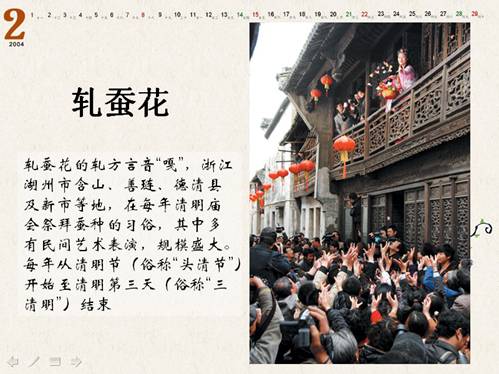 2
2004
1 2 3 4 5 6 7 8 9 10 11 12 13 14 15 16 17 18 19 20 21 22 23 24 25 26 27 28 29
轧蚕花
轧蚕花的轧方言音“嘎”，浙江
湖州市含山、善琏、德清县
及新市等地，在每年清明庙
会祭拜蚕种的习俗，其中多
有民间艺术表演，规模盛大。
每年从清明节（俗称“头清节”）
开始至清明第三天（俗称“三
清明”）结束